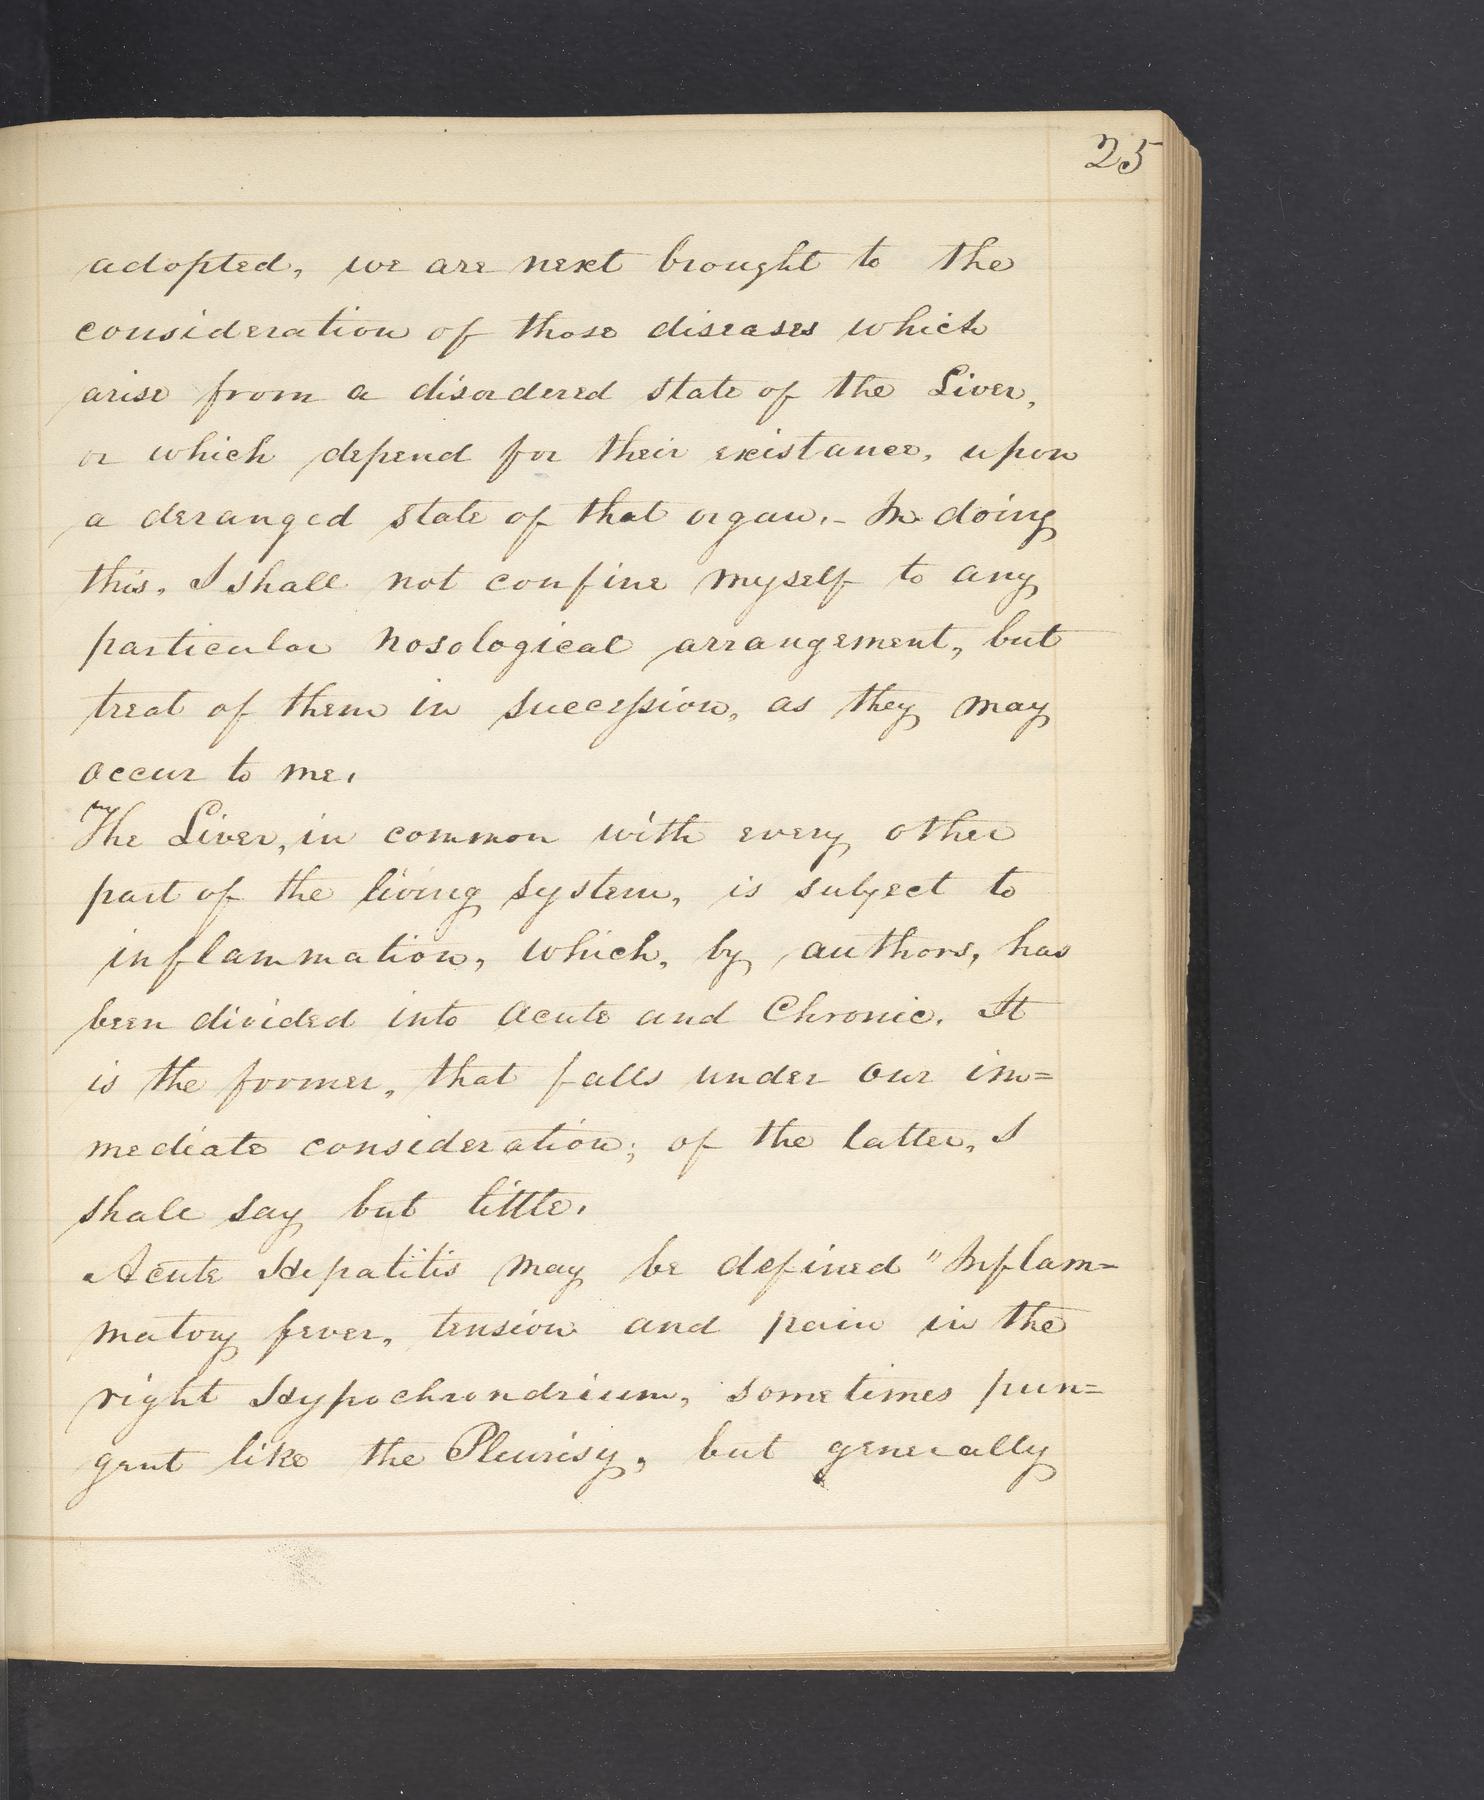 25
adopted, we are next brought to the
consideration of those diseases which
arise from a disordered state of the Liver,
or which depend for their existance, upon
a deranged state of that organ. - In doing
this, I shall not confine myself to any
particular nosological arrangement, but
treat of them in succession, as they may
occur to me.
The Liver, in common with every other
part of the living system, is subject to
inflammation, which, by authors, has
been divided into Acute and Chronic. It
is the former, that falls under our im=
mediate consideration; of the latter, I
shall say but little.
Acute Hepatitis may be defined "Inflam=
matory fever, tension and pain in the
right Hypochrondrium, sometimes pun=
gent like the Pleurisy, but generally